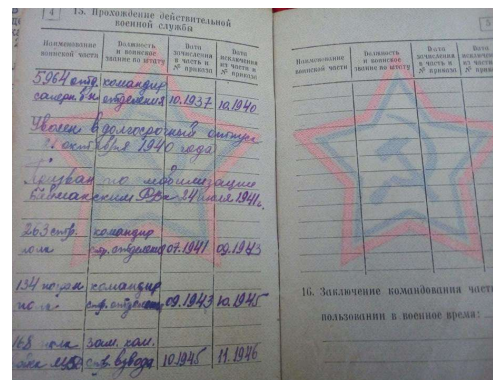 4
15. Прохождение действительной
военной службы
Наименование воинской части
Должность и воинское звание по штату
Дата зачисления в часть и № приказа
Дата исключения из части и № приказа
5964 отд. командир
саперн. б-н отделения 10.1937 10.1940
Уволен в долгосрочный отпуск
октября 1940 года
Призван по мобилизации
РВК 24 июля 1941 г.
263 стр. командир
полк стр. отделения 07.1941 09.1943
134 командир
полк стр. отделения 09.1943 10.1945
168 полк зам. ком.
стр. взвода 10.1945 11.1946
5
Наименование воинской части
Должность и воинское звание по штату
Дата зачисления в часть и № приказа
Дата исключения из части и № приказа
16. Заключение командования част
пользовании в военное время: